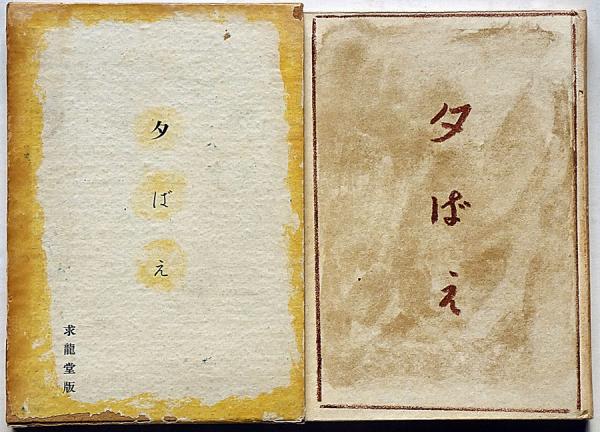 夕ばえ
求龍堂版
夕ばえ